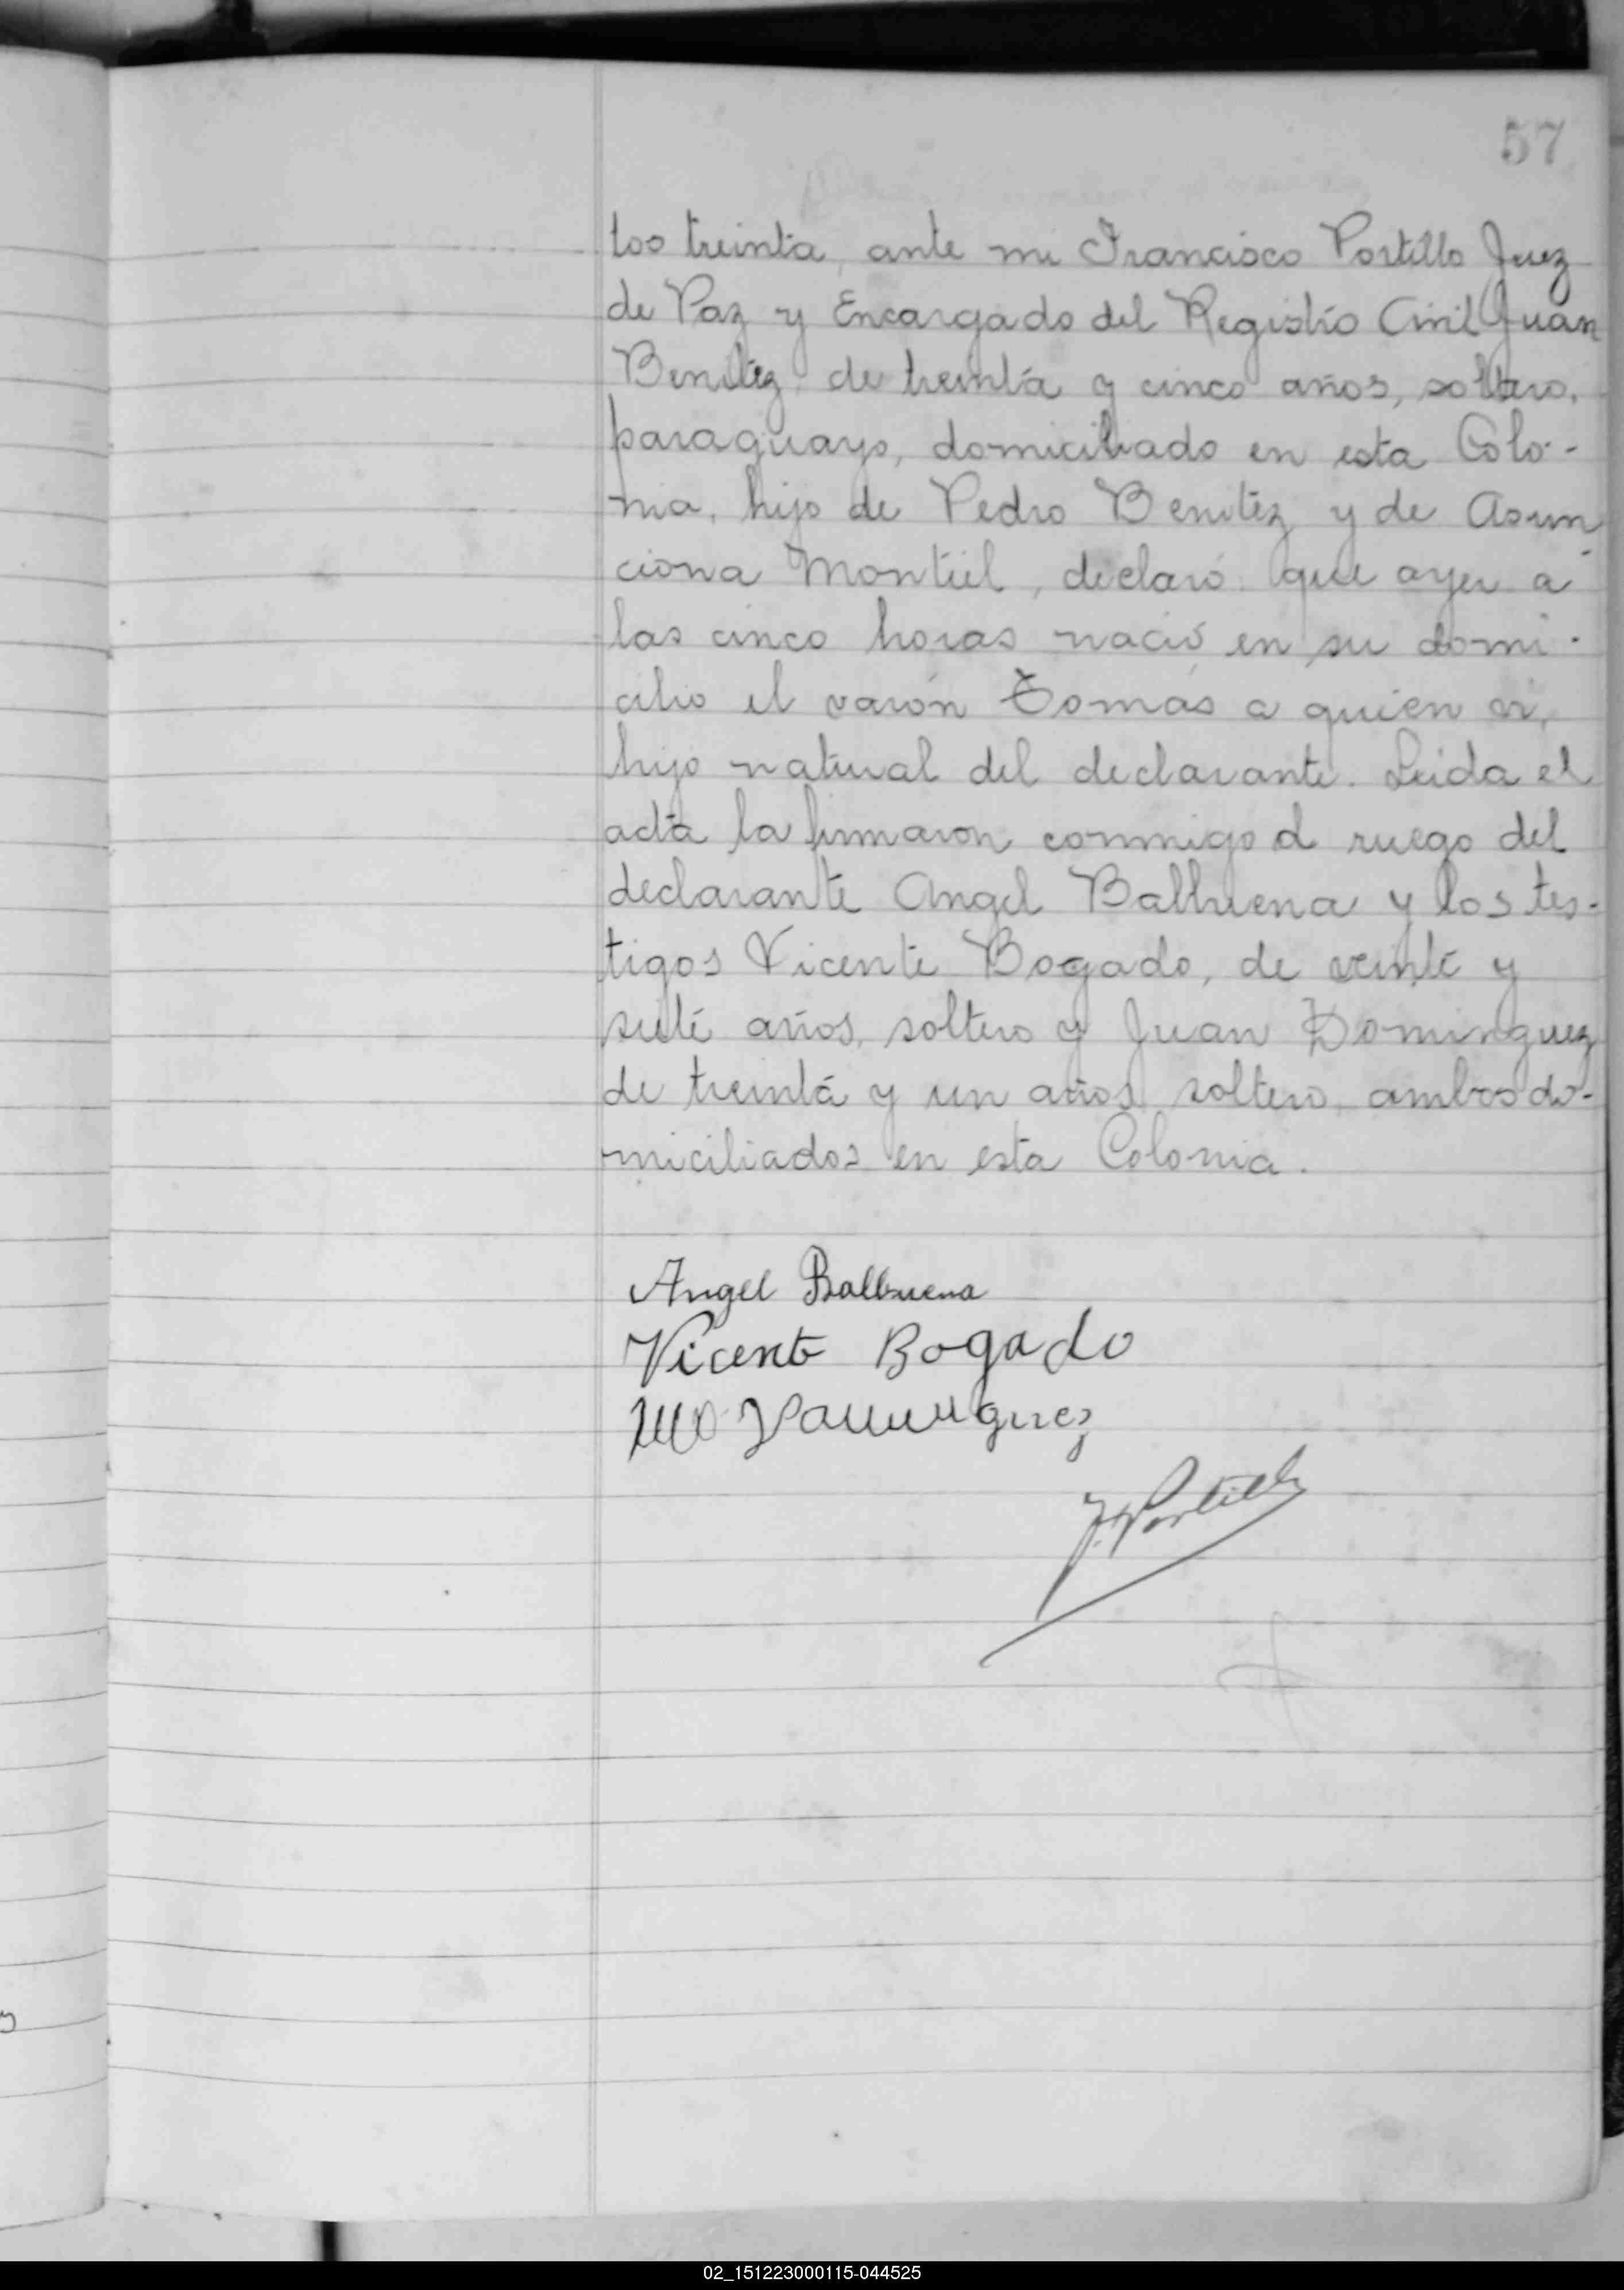 57
tos treinta, ante mi Francisco Portillo Juez
de Paz y Encargado del Registro Civil Juan
Benitez de treinta y cinco años, soltero,
paraguayo, domiciliado en esta Colo-
nia, hijo de Pedro Benitez y de Asun
ciona Montiel, declaró: que ayer a
las cinco horas nació en su domi-
cilio el varón Tomás a quien vi,
hijo natural del declarante. Leida el
acta la firmaron conmigo á ruego del
declarante Angel Balbuena y los tes-
tigos Vicente Bogado, de veinte y
siete años, soltero y Juan Dominguez
de treinta y un años soltero, ambos do-
miciliados en esta Colonia.
Angel Balbuena
Vicente Bogado
Dominguez
F. Portillo
02_151223000115-044525